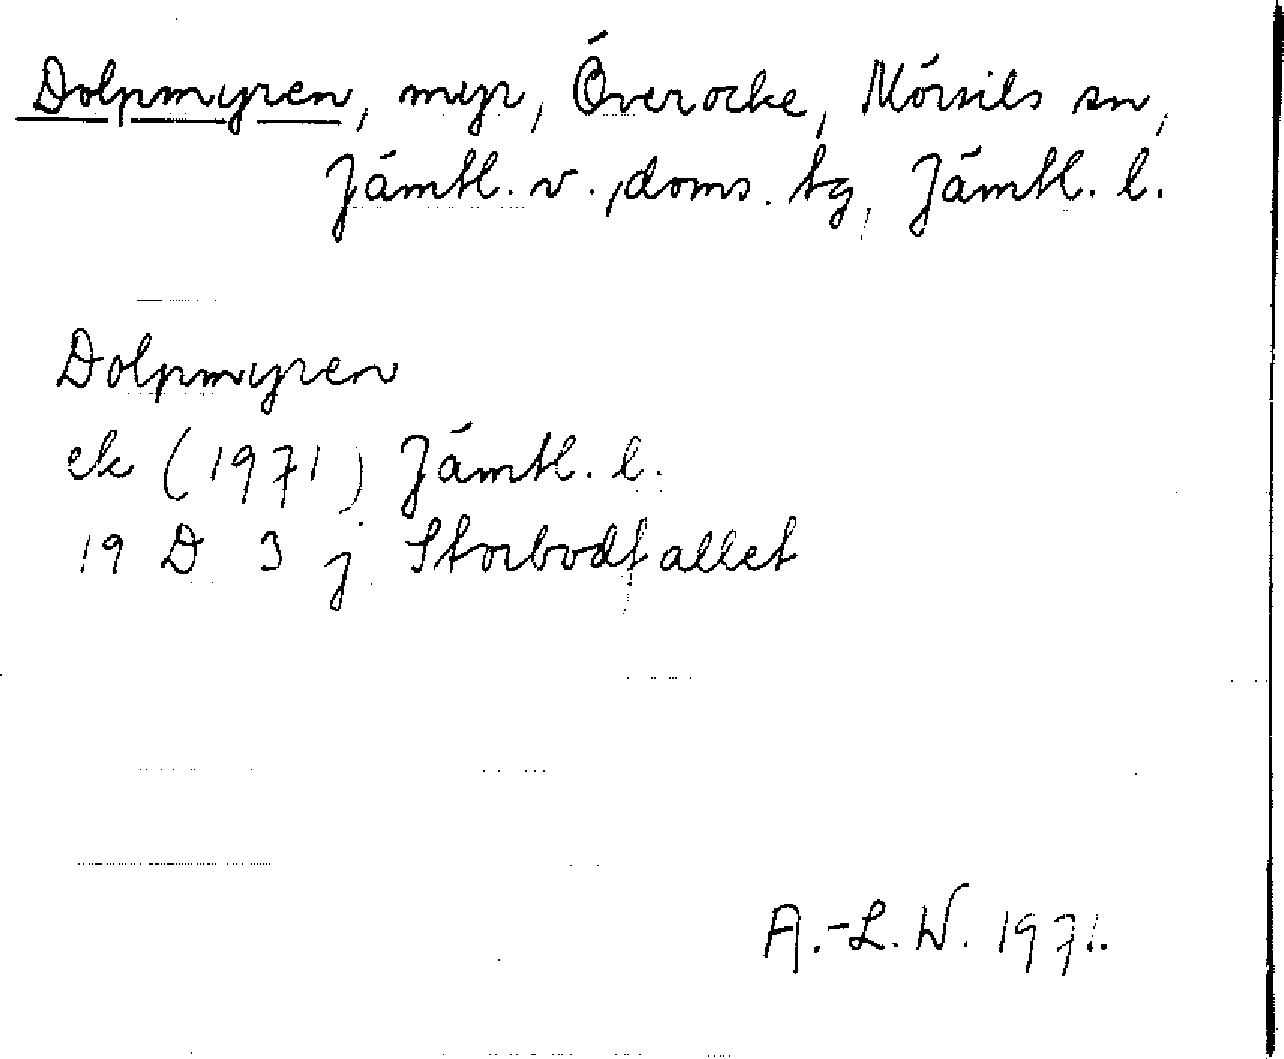 Dolpmyren, myr, Överocke, Mörsils sn,
Jämtl. v. doms. tg, Jämtl. l.
Dolpmyren
ek (1971) Jämtl. l.
19 D 3 j Storbodfallet
A.-L. W. 1971.